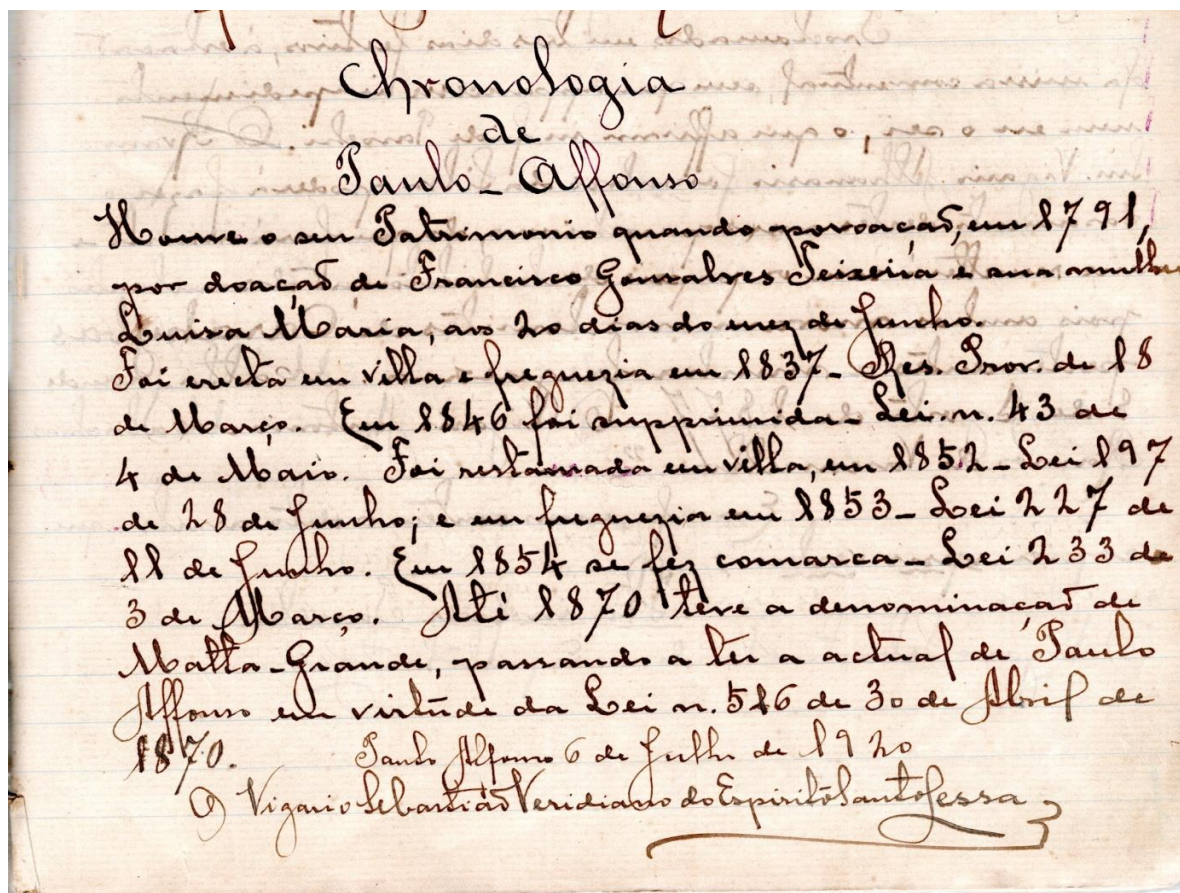 Chronologia
de
Paulo-Affonso
Houve o seu Patrimonio quando povoação, em 1791,
por doação de Francisco Gonsalves Teixeira e sua mulher
Luisa Maria, aos 20 dias do mez de Junho.
Foi erecta em villa e freguezia em 1837 - Res. Prov. de 18
de Março. Em 1846 foi supprimida - Lei. n. 43 de
4 de Maio. Foi restaurada em villa, em 1852 - Lei 197
de 28 de Junho; e em freguezia em 1853 - Lei 227 de
11 de Junho. Em 1854 se fez comarca - Lei 233 de
3 de Março. Até 1870 teve a denominação de
Matta-Grande, passando a ter a actual de Paulo
Affonso em virtude da Lei n. 516 de 30 de Abril de
1870. Paulo Affonso 6 de Julho de 1920
O Vigario Sebastião Veridiano do Espirito Santo Lessa